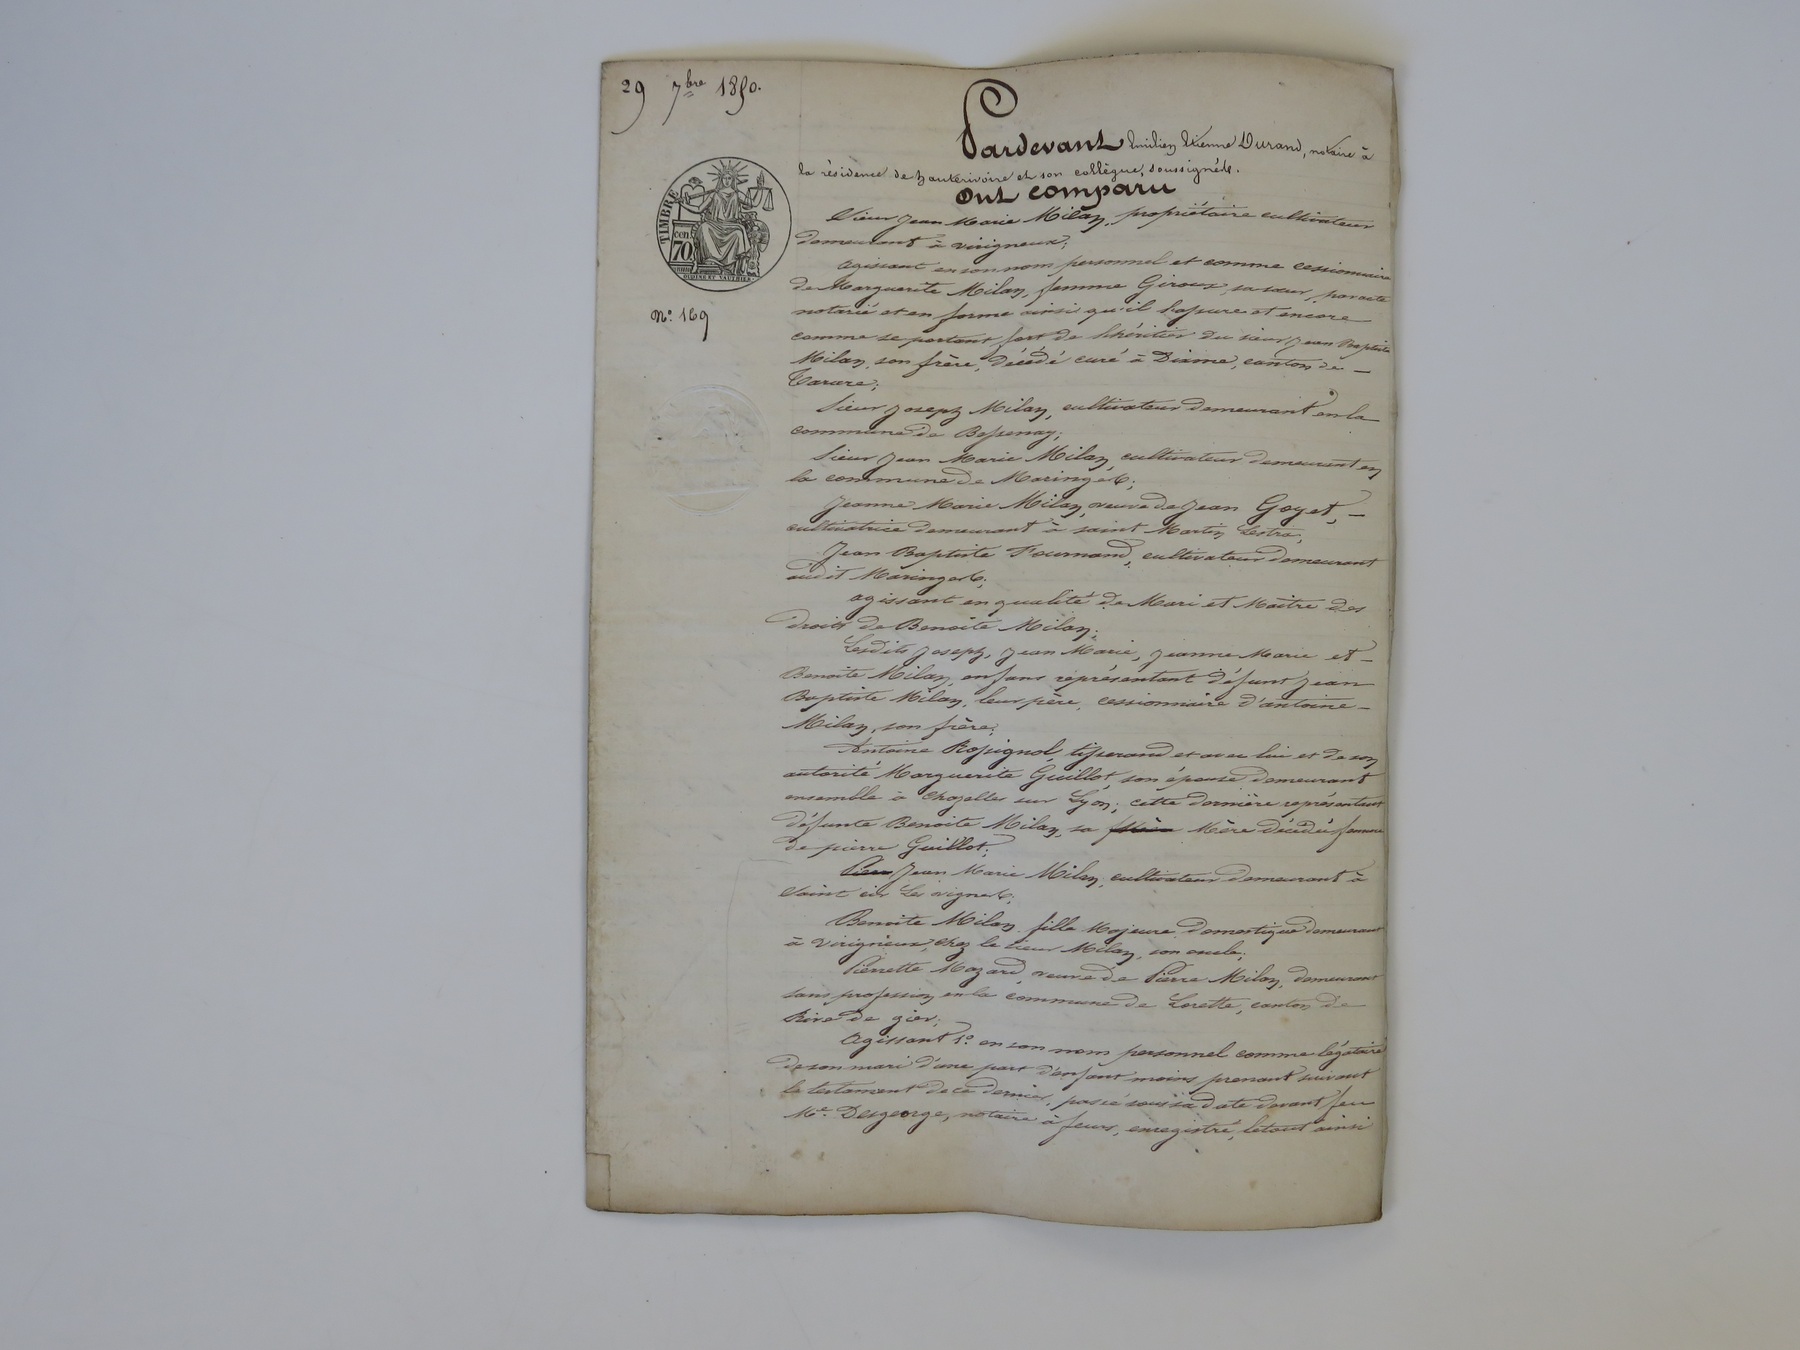 29 7bre 1850.
Pardevant Emilien Etienne Durand, notaire à
la résidence de hauterivoire et son collègue, soussignés.
Ont comparu
TIMBRE
cen
70
Nº. 169
Sieur Jean Marie Milan, propriétaire cultivateur
demeurant à virigneux;
agissant en son nom personnel et comme cessionnaire
de Marguerite Milan, femme Giroux, sa sœur, par acte
notarié et en forme ainsi qu'il l'assure et encore
comme se portant fort de l'héritier du sieur Jean Baptiste
Milan, son frère, décédé curé à Dième, canton de —
Tarare;
Sieur Joseph Milan, cultivateur demeurant en la
commune de Bessenay;
Sieur Jean Marie Milan, cultivateur demeurant en
la commune de Maringes;
Jeanne Marie Milan, veuve de Jean Goyet, —
cultivatrice demeurant à saint Martin Lestra;
Jean Baptiste Fournand, cultivateur demeurant
audit Maringes;
agissant en qualité de Mari et Maître des
droits de Benoite Milan;
Lesdits Joseph, Jean Marie, Jeanne Marie et —
Benoite Milan, enfans représentant défunt Jean
Baptiste Milan, leur père, cessionnaire d'antoine —
Milan, son frère;
Antoine Rossignol, tisserand et avec lui et de son
autorité Marguerite Guillot, son épouse demeurant
ensemble à Chazelles sur Lyon; cette dernière représentant
défunte Benoite Milan, sa Mère décédée femme
de pierre Guillot;
Jean Marie Milan, cultivateur demeurant à
Saint cir les vignes;
Benoite Milan fille Majeure domestique demeurant
à Virigneux, chez le sieur Milan, son oncle;
Pierrette Mazard, veuve de Pierre Milan, demeurant
sans profession en la commune de Lorette, canton de
Rive de gier;
Agissant 1º. en son nom personnel comme légataire
de son mari d'une part d'enfant moins prenant suivant
le testament de ce dernier, passé sous sa date devant feu
Me. Desgeorge, notaire à feurs, enregistré, le tout ainsi